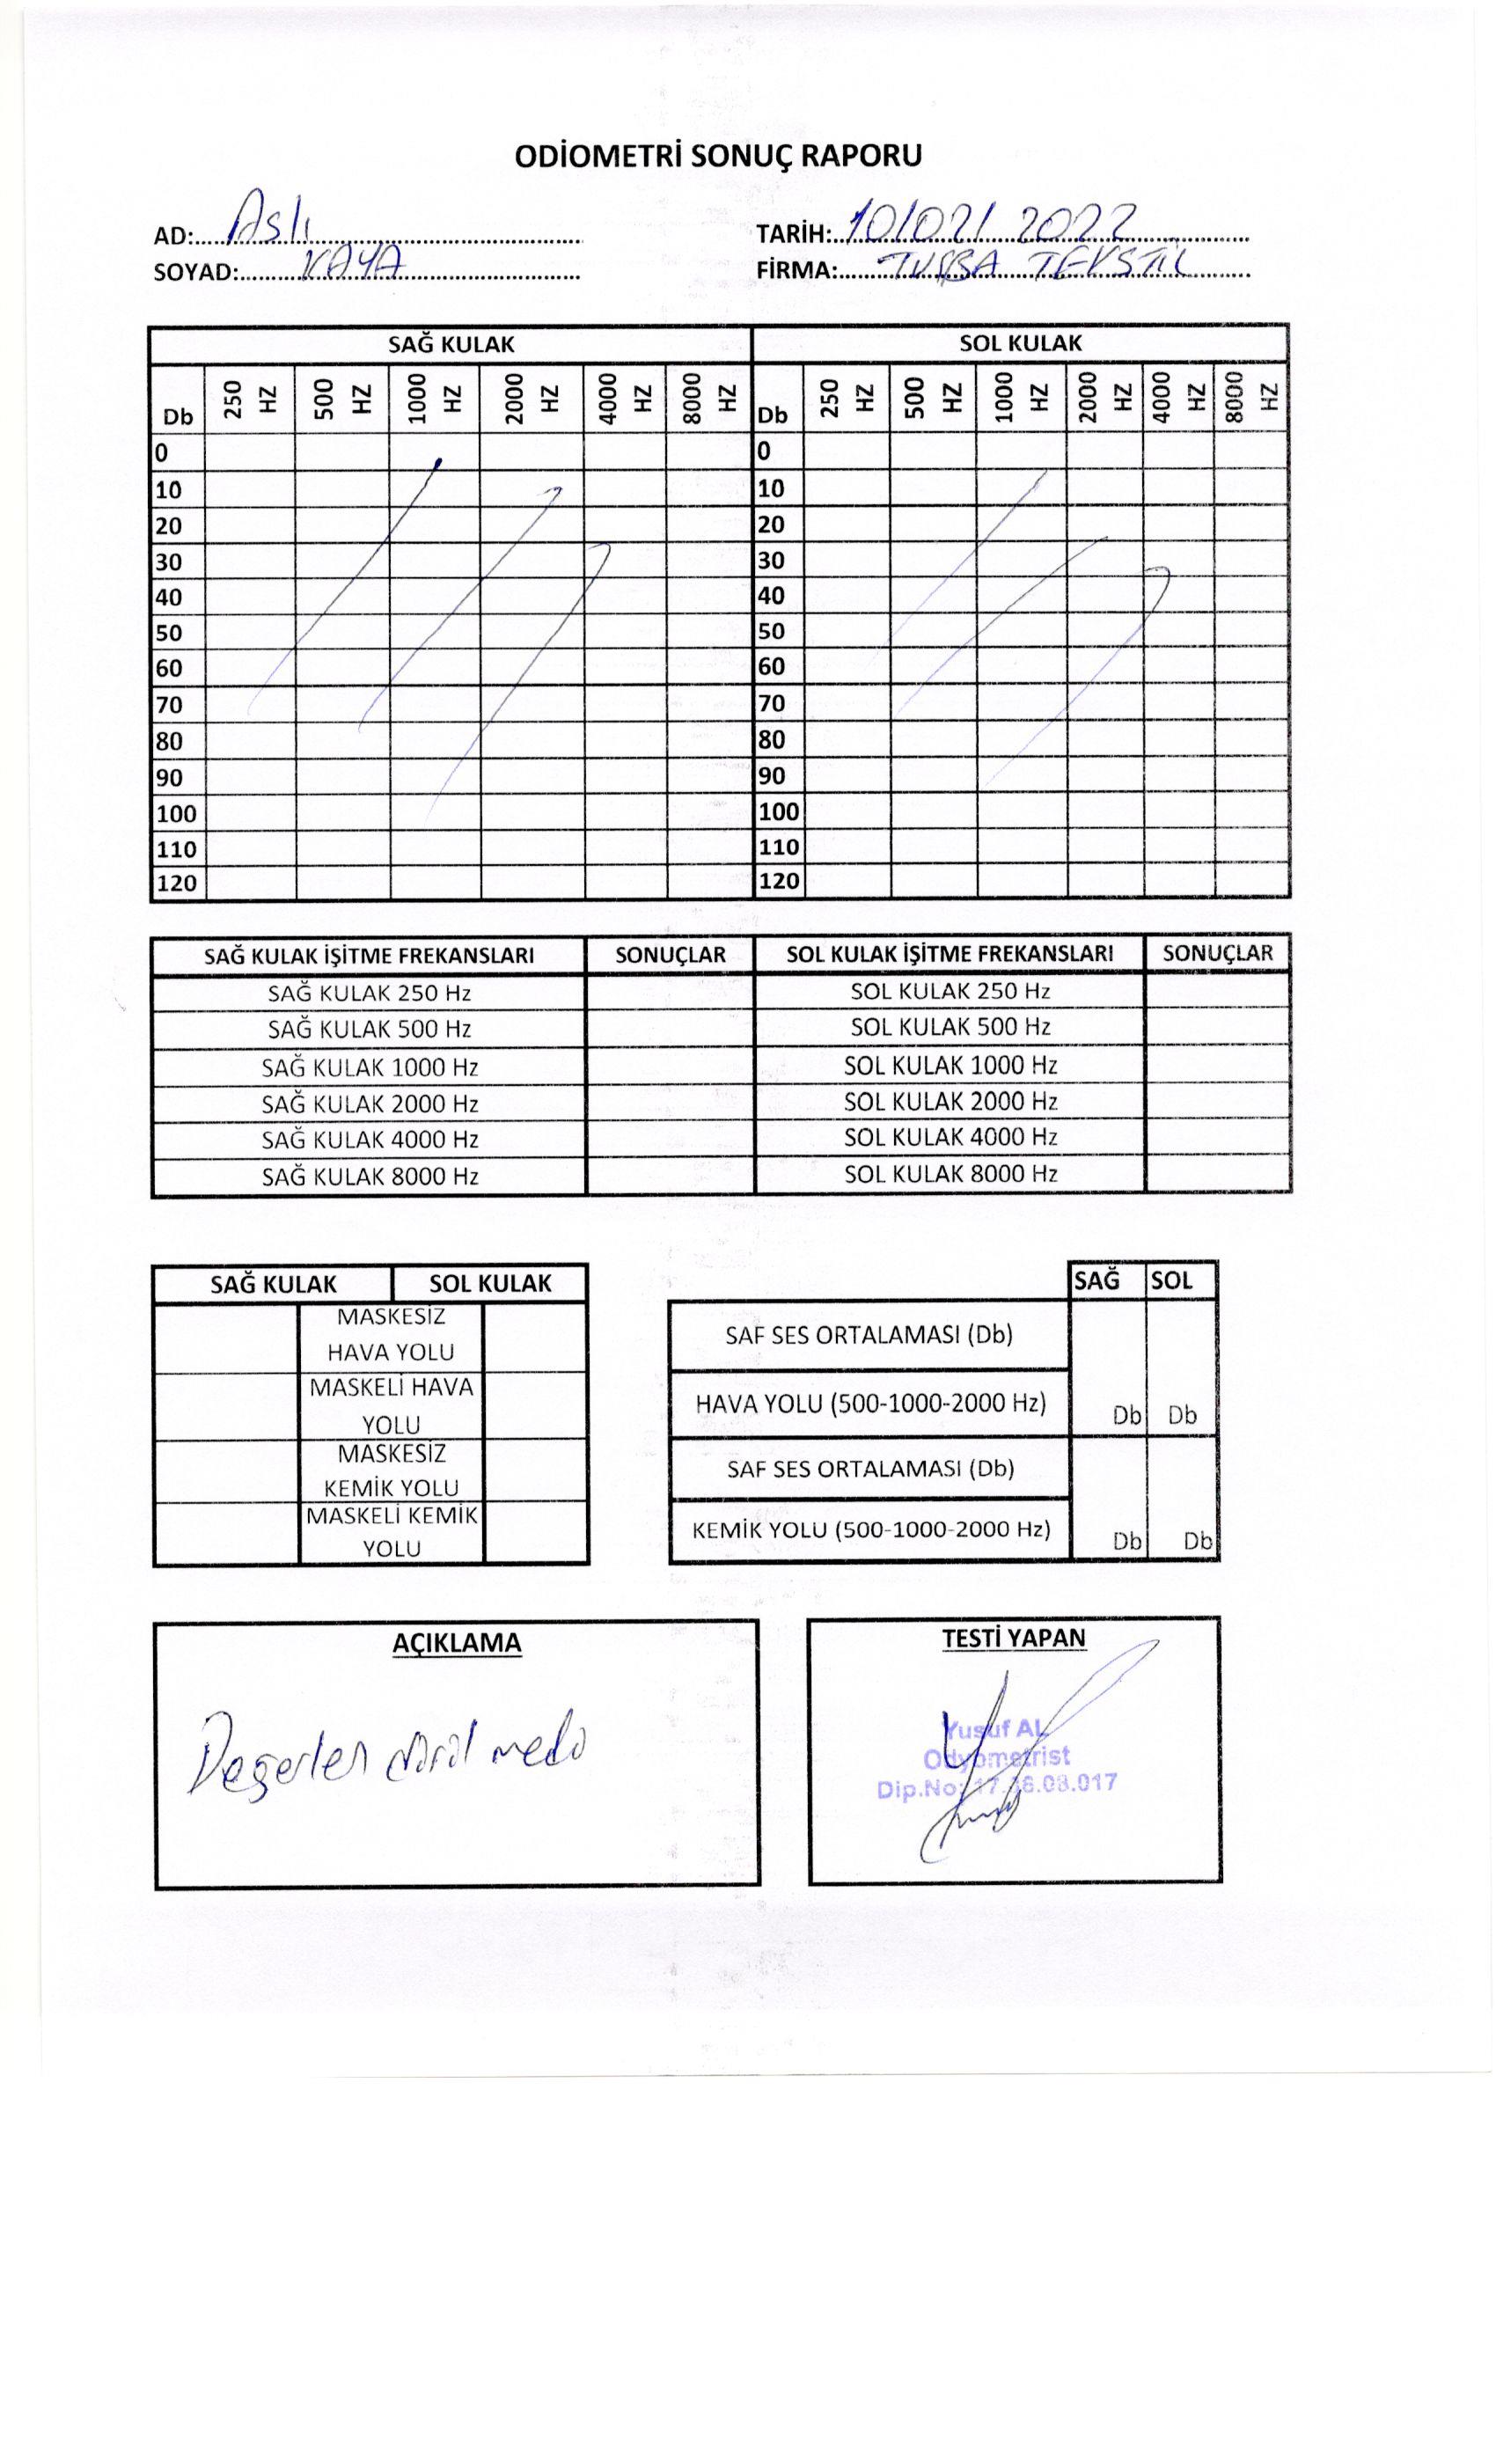 ODİOMETRİ SONUÇ RAPORU
AD: Aslı TARİH: 10/02/2022
SOYAD: KAYA FİRMA: TUĞBA TEKSTİL
SAĞ KULAK SOL KULAK
Db 250 HZ 500 HZ 1000 HZ 2000 HZ 4000 HZ 8000 HZ Db 250 HZ 500 HZ 1000 HZ 2000 HZ 4000 HZ 8000 HZ
0 0
10 10
20 20
30 30
40 40
50 50
60 60
70 70
80 80
90 90
100 100
110 110
120 120
SAĞ KULAK İŞİTME FREKANSLARI SONUÇLAR SOL KULAK İŞİTME FREKANSLARI SONUÇLAR
SAĞ KULAK 250 Hz SOL KULAK 250 Hz
SAĞ KULAK 500 Hz SOL KULAK 500 Hz
SAĞ KULAK 1000 Hz SOL KULAK 1000 Hz
SAĞ KULAK 2000 Hz SOL KULAK 2000 Hz
SAĞ KULAK 4000 Hz SOL KULAK 4000 Hz
SAĞ KULAK 8000 Hz SOL KULAK 8000 Hz
SAĞ KULAK SOL KULAK
MASKESİZ
HAVA YOLU
MASKELİ HAVA
YOLU
MASKESİZ
KEMİK YOLU
MASKELİ KEMİK
YOLU
SAĞ SOL
SAF SES ORTALAMASI (Db)
HAVA YOLU (500-1000-2000 Hz) Db Db
SAF SES ORTALAMASI (Db)
KEMİK YOLU (500-1000-2000 Hz) Db Db
AÇIKLAMA
Değerlen
TESTİ YAPAN
Yusuf AL
Odyometrist
Dip.No: 17.36.03.017